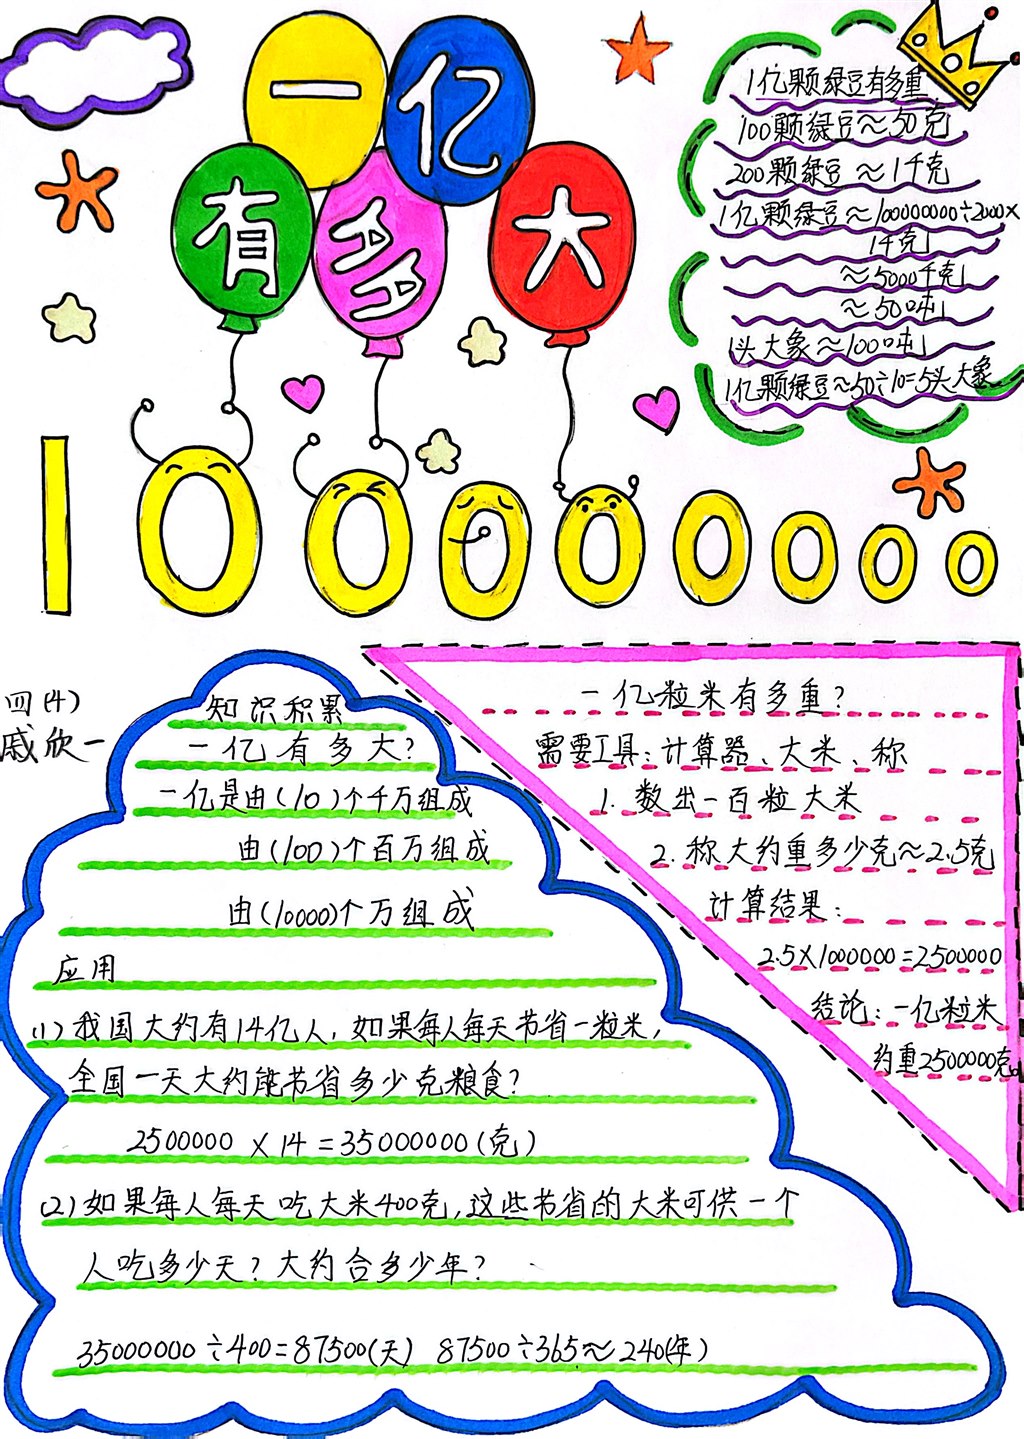 一亿
有多大
1亿颗绿豆有多重
100颗绿豆≈50克
200颗绿豆≈1千克
1亿颗绿豆≈100000000÷2000×
1千克
≈5000千克
≈50吨
1头大象≈100吨
1亿颗绿豆≈50÷10=5头大象
100000000
四(4)
戚欣一
知识积累
一亿有多大?
一亿是由(10)个千万组成
由(100)个百万组成
由(10000)个万组成
应用
(1)我国大约有14亿人,如果每人每天节省一粒米,
全国一天大约能节省多少克粮食?
2500000×14=35000000(克)
(2)如果每人每天吃大米400克,这些节省的大米可供一个
人吃多少天?大约合多少年?
35000000÷400=87500(天) 87500÷365≈240(年)
一亿粒米有多重?
需要工具:计算器、大米、称
1.数出一百粒大米
2.称大约重多少克≈2.5克
计算结果:
2.5×1000000=2500000
结论:一亿粒米
约重2500000克。